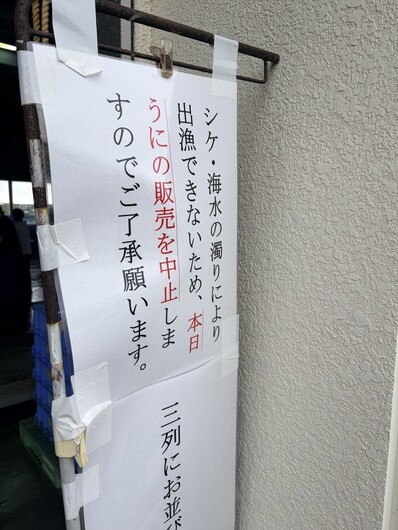 シケ・海水の濁りにより
出漁できないため、本日
うにの販売を中止しま
すのでご了承願います。
三列にお並び